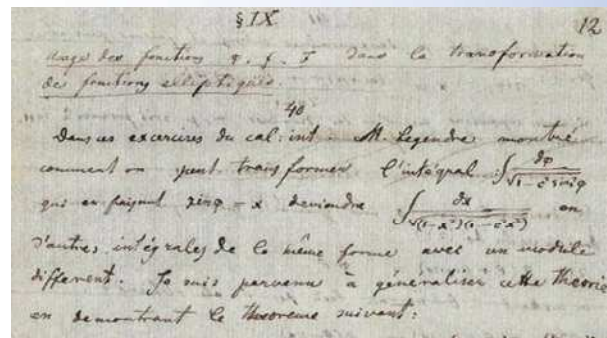 § IX 12
usage des fonctions φ. f. F dans la transformation
des fonctions elliptiques.
40
Dans ces excercises du cal: int. M. Legendre montré
comment on peut transformer l'intégral ∫ dφ/√(1-c² sin²φ)
qui en faisant sinφ = x deviendra ∫ dx/√((1-x²)(1-c²x²)) en
d'autres intégrales de la même forme avec un module
different. Je suis parvenu à généraliser cette theorie
en demontrant le theoreme suivant: